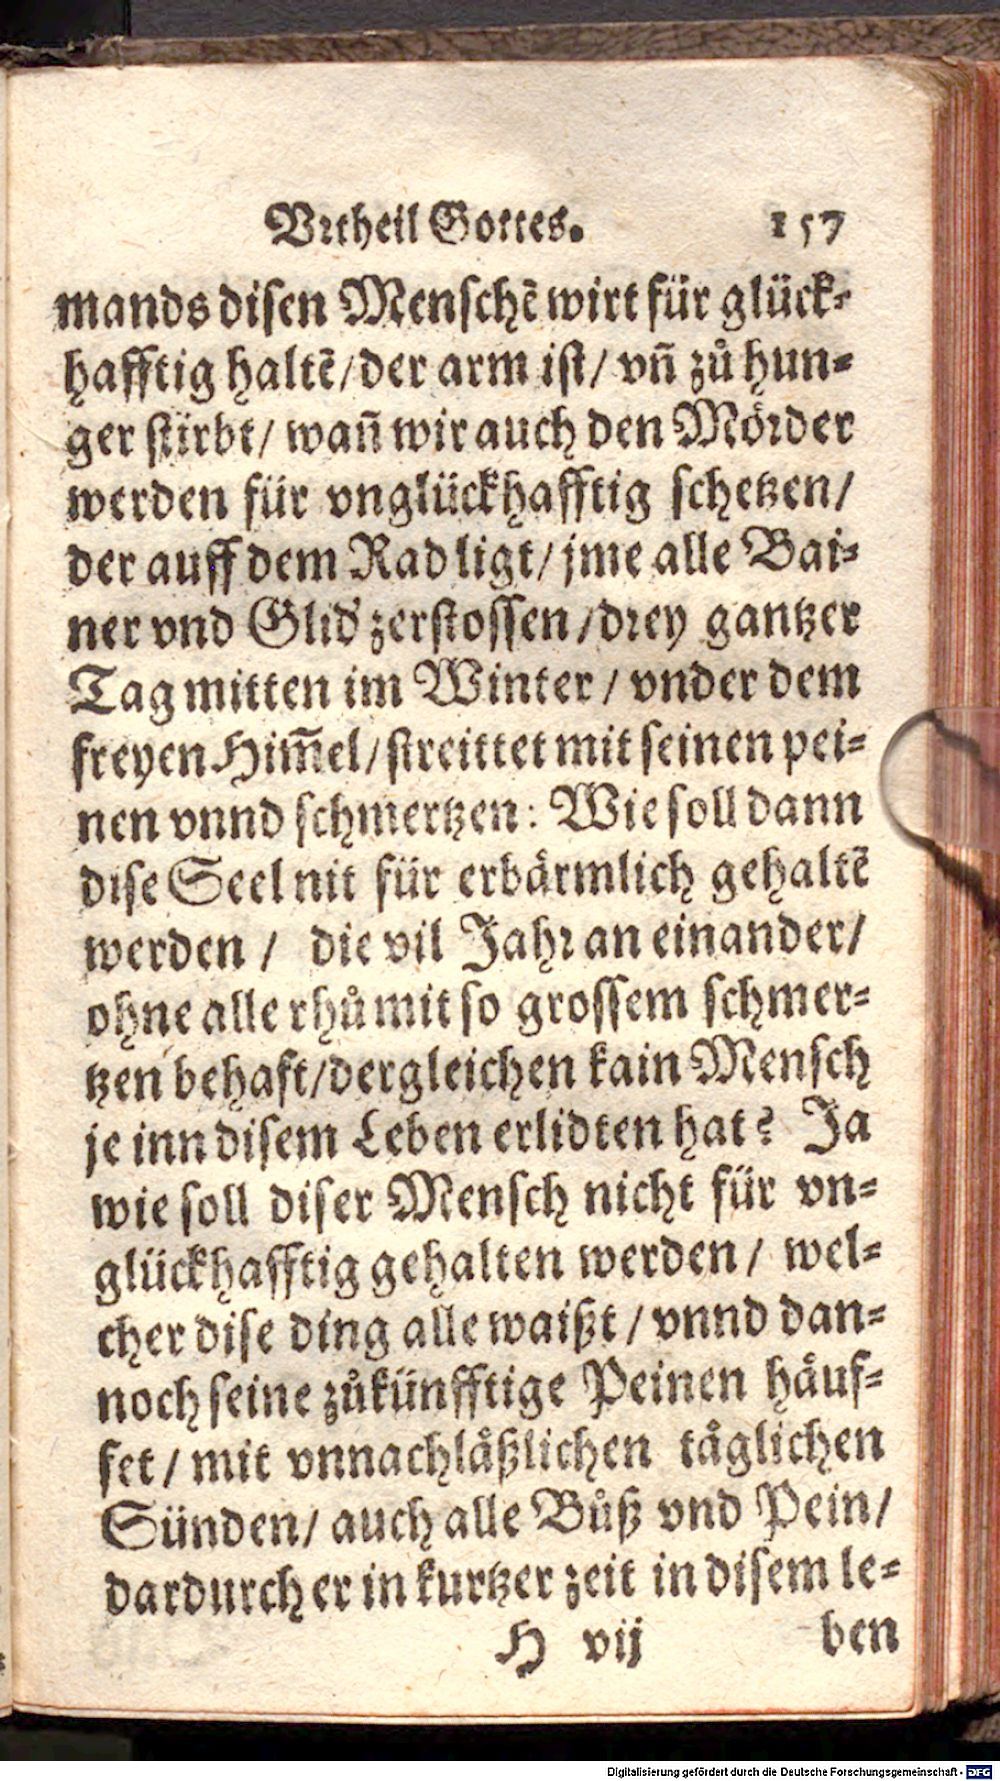 Vrtheil Gottes. 157
mands disen Menschē wirt für glück-
hafftig haltē/ der arm ist/ vñ zů hun-
ger stirbt/ wañ wir auch den Mörder
werden für vnglückhafftig schetzen/
der auff dem Rad ligt/ jme alle Bai-
ner vnd Glid zerstossen/ drey gantzer
Tag mitten im Winter/ vnder dem
freyen Him̄el/ streittet mit seinen pei-
nen vnnd schmertzen: Wie soll dann
dise Seel nit für erbärmlich gehaltē
werden/ die vil Jahr an einander/
ohne alle rhů mit so grossem schmer-
tzen behaft/ dergleichen kain Mensch
je inn disem Leben erlidten hat? Ja
wie soll diser Mensch nicht für vn-
glückhafftig gehalten werden/ wel-
cher dise ding alle waißt/ vnnd dan-
noch seine zůkünfftige Peinen häuf-
fet/ mit vnnachläßlichen täglichen
Sünden/ auch alle Bůß vnd Pein/
dardurch er in kurtzer zeit in disem le-
H vij ben
Digitalisierung gefördert durch die Deutsche Forschungsgemeinschaft - DFG